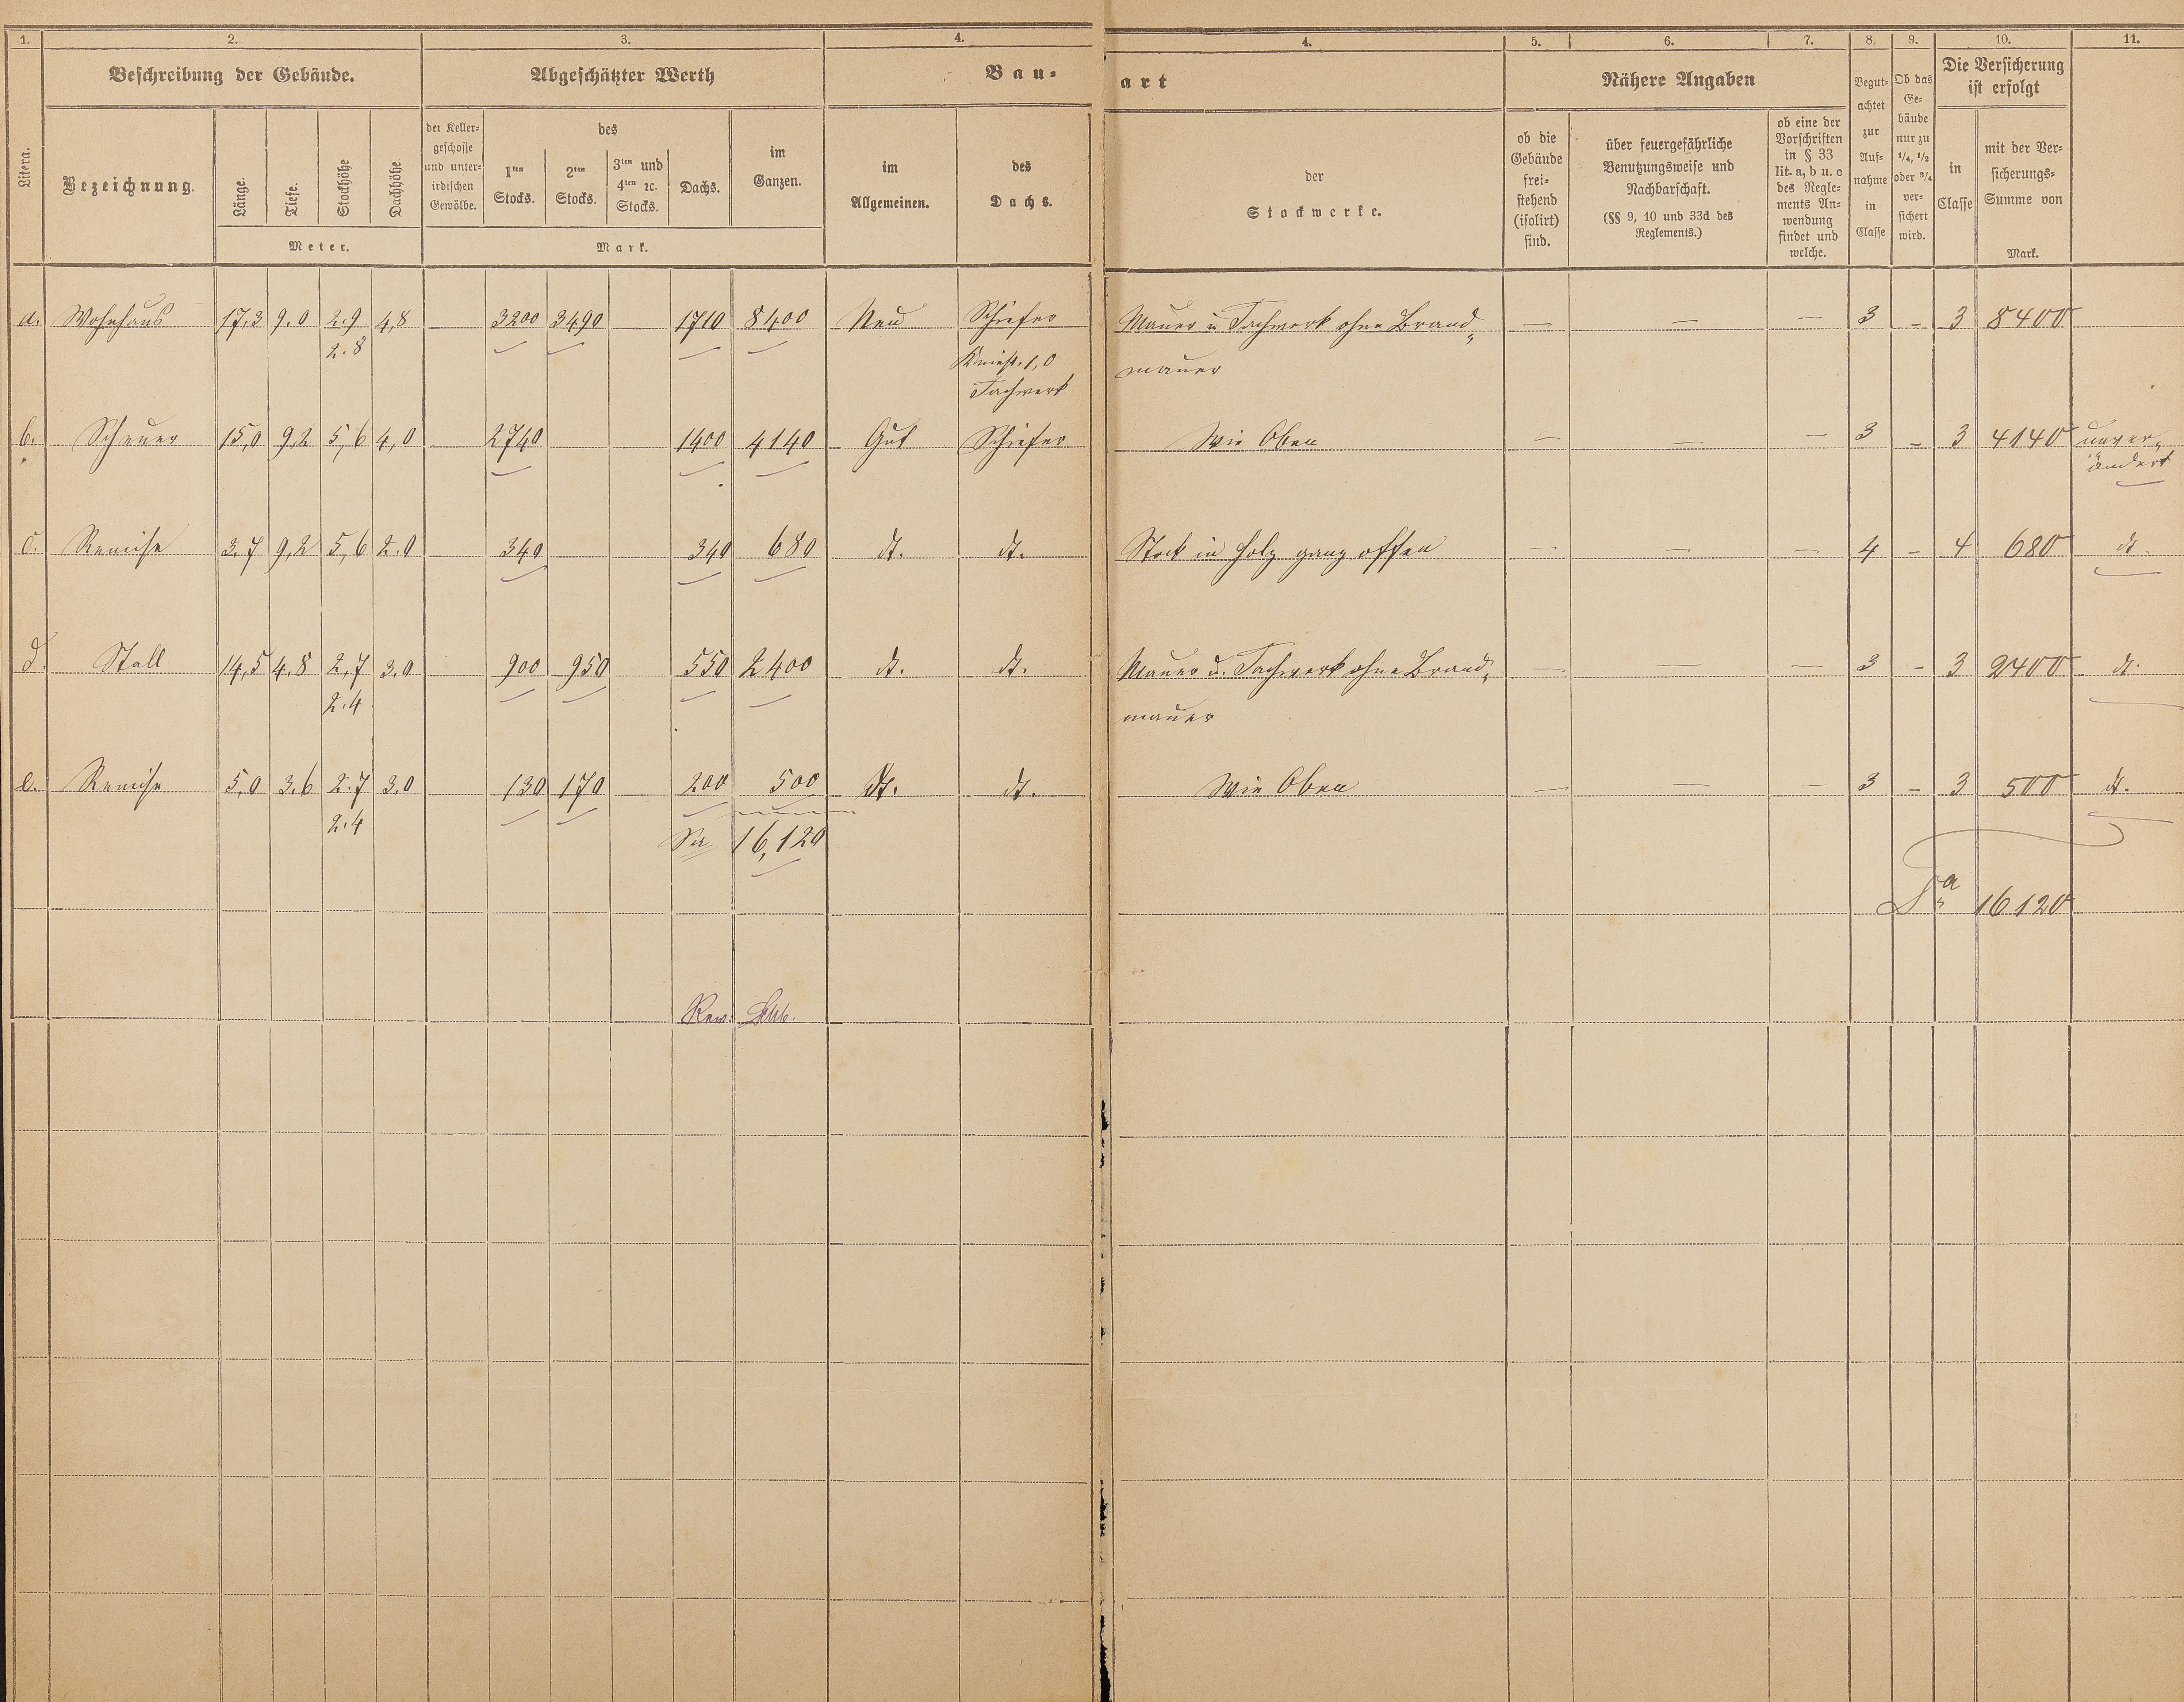 1. 2. 3. 4. 4. 5. 6. 7. 8. 9. 10. 11.
Beschreibung der Gebäude. Abgeschätzter Werth Bau- art Nähere Angaben
Die Versicherung
ist erfolgt
Litera.
Bezeichnung.
Länge.
Tiefe.
Stockhöhe
Dachhöhe.
Meter.
der Keller-
geschosse
und unter-
irdischen
Gewölbe.
des
1ten
Stocks.
2ten
Stocks.
3ten und
4ten ꝛc.
Stocks.
Dachs.
im
Ganzen.
Mark.
im
Allgemeinen.
des
Dachs.
der
Stockwerke.
ob die
Gebäude
frei-
stehend
(isolirt)
sind.
über feuergefährliche
Benutzungsweise und
Nachbarschaft.
(§§ 9, 10 und 33d des
Reglements.)
ob eine der
Vorschriften
in § 33
lit. a, b u. c
des Regle-
ments An-
wendung
findet und
welche.
Begut-
achtet
zur
Auf-
nahme
in
Classe
Ob das
Ge-
bäude
nur zu
1/4, 1/2
oder 3/4
ver-
sichert
wird.
in
Classe
mit der Ver-
sicherungs-
Summe von
Mark.
a. Wohnhaus 17,3 9.0 2.9 4,8 3200 3490 — 1710 8400 Neu Schiefer Mauer u Fachwerk ohne Brand„ — — — 3 – 3 8400
2.8 Kniest. 1,0 mauer
Fachwerk
b. Scheuer 15,0 9,2 5,6 4,0 2740 1400 4140 Gut Schiefer Wie Oben — — — 3 – 3 4140 unver„
ändert
c. Remise 3.7 9,2 5,6 2.0 340 340 680 dt. dt. Stock in Holz ganz offen — — — 4 – 4 680 dt.
d. Stall 14,5 4.8 2,7 3,0 900 950 550 2400 dt. dt. Mauer u. Fachwerk ohne Brand„ — — — 3 – 3 2400 dt.
2.4 mauer
e. Remise 5,0 3.6 2.7 3,0 130 170 — 200 500 dt. dt. Wie Oben — — — 3 – 3 500 dt.
2.4
Sa 16,120
Sa 16120
Rev.